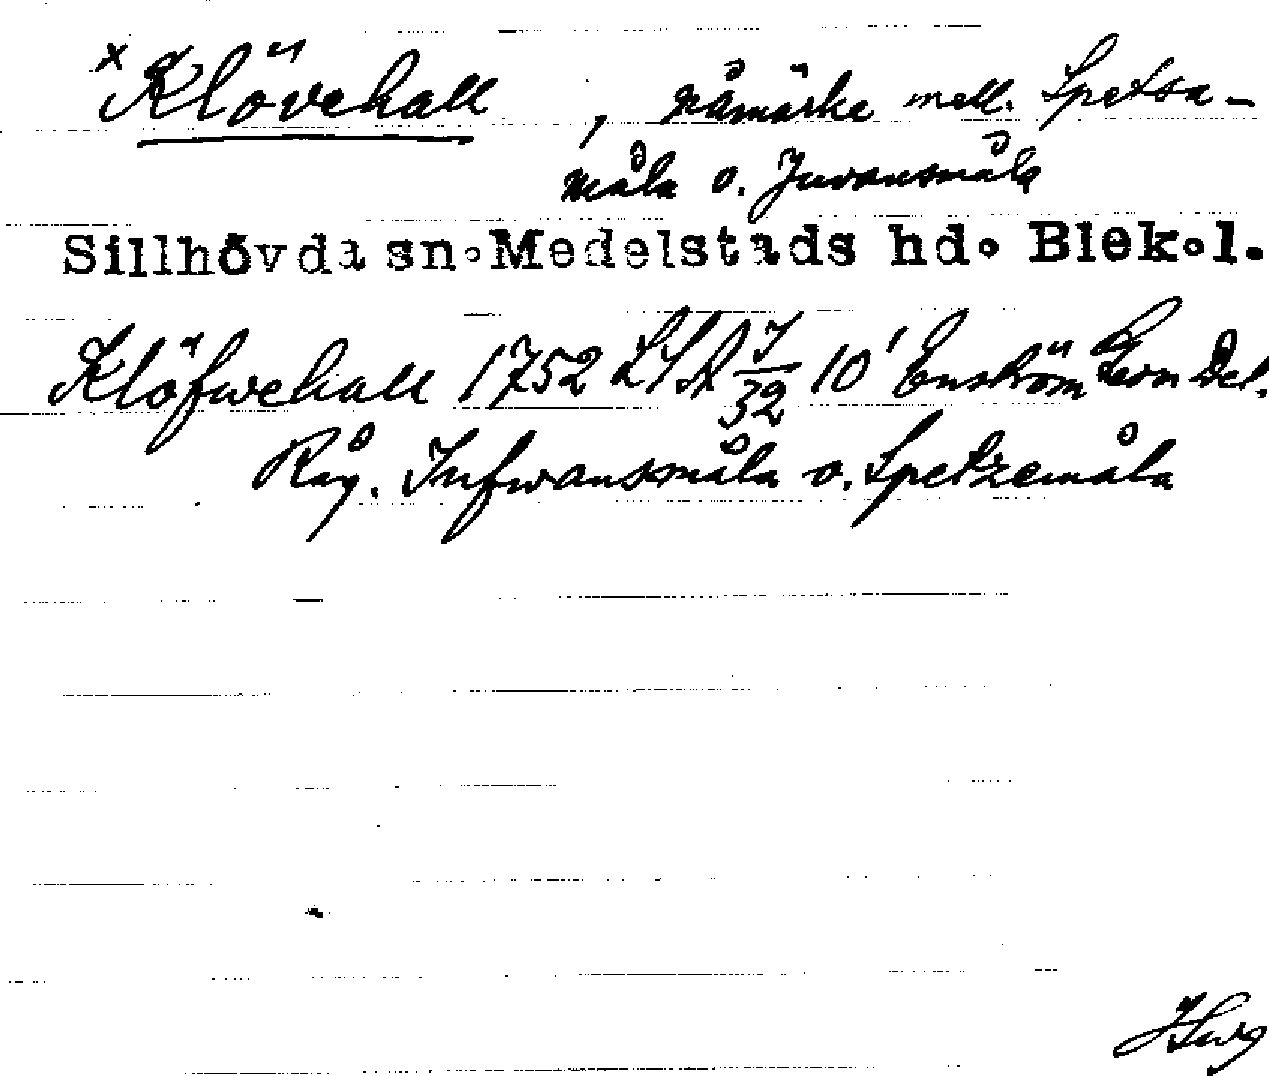 x Klövehall, råmärke mell. Spetsa-
måla o. Juvansmåla
Sillhövda sn. Medelstads hd. Blek.l.
Klöfwehall 1752 LSA J/32 10' Enström Geom Del.
Råg. Jufwansmåla o. Spetzemåla